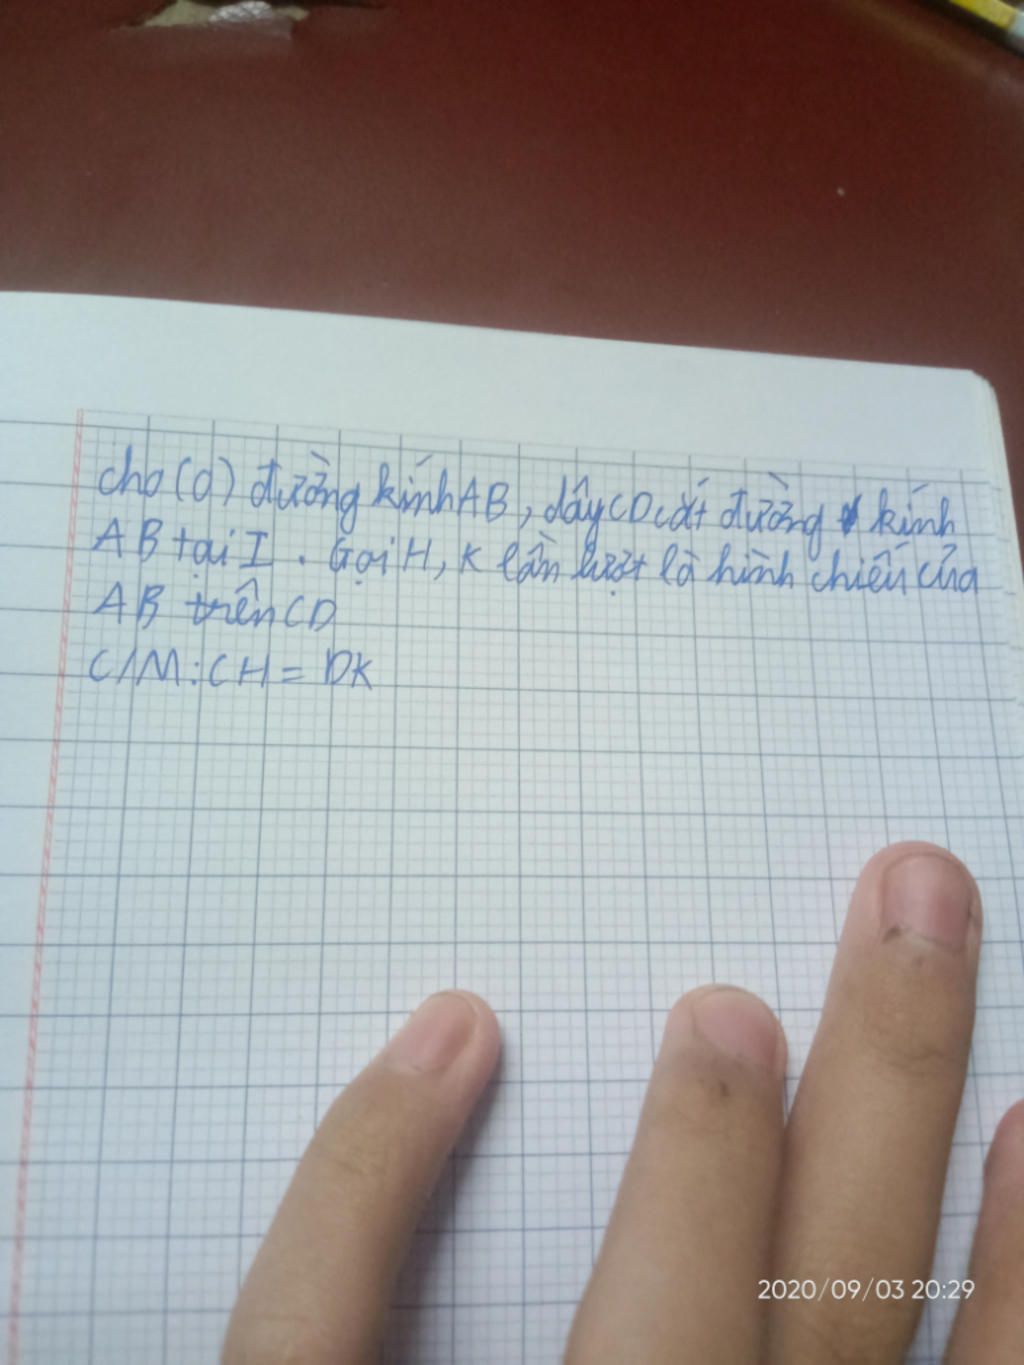 cho (O) đường kính AB, dây CD cắt đường kính
AB tại I. Gọi H, K lần lượt là hình chiếu của
AB trên CD
C/M: CH = DK
2020/09/03 20:29